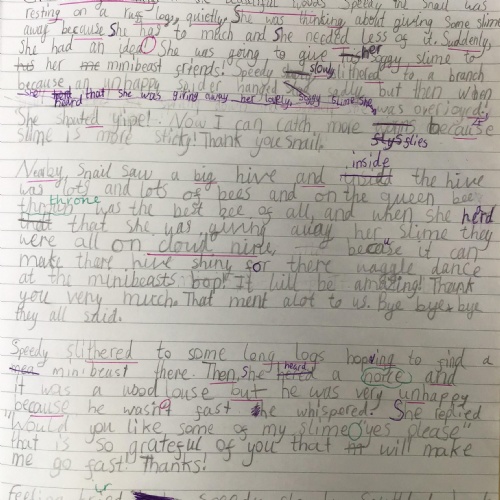 the beautiful woods Speedy the snail was
resting on a log, quietly. She was thinking about giving some slime
away because she has to much and she needed less of it. Suddenly,
She had an idea! She was going to give her soggy slime to
her minibeast friends. Speedy slowly slithered to a branch
because an unhappy spider handed sadly, but then when
she heard that she was giving away her lovely, soggy slime she was overjoyed.
She shouted yipe! Now I can catch more because
slime is more sticky! Thank you snail. flies
Neaby, Snail saw a big hive and inside the hive
was lots and lots of bees and on the queen bees
throne was the best bee of all, and when she herd
that she was giving away her slime they
were all on cloud nine, because it can
make there hive shiny for there waggle dance
at the minibeasts bop! It will be amazing! Thank
you very much. That ment alot to us. Bye bye bye
they all said.
Speedy slithered to some long logs hopping to find a
minibeast there. Then, She heard a noice and
it was a woodlouse but he was very unhappy
because he wasn't fast he whispered. She replied
"Would you like some of my slime yes please"
that is so grateful of you that will make
me go fast! Thanks!
Feeling